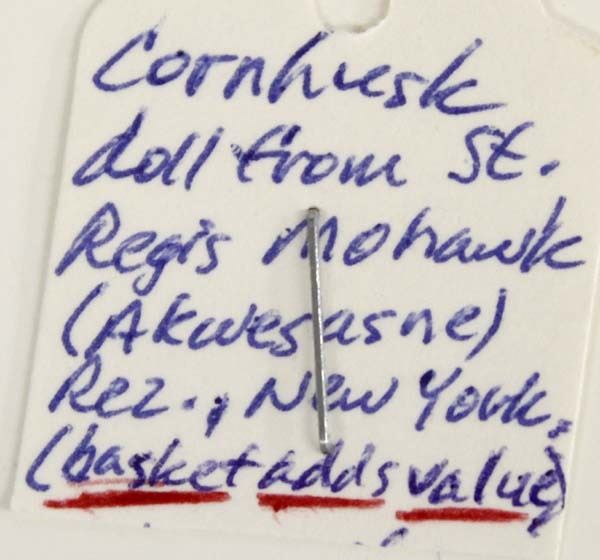 Cornhusk
doll from St.
Regis Mohawk
(Akwesasne)
Rez., New York,
(basket adds value)